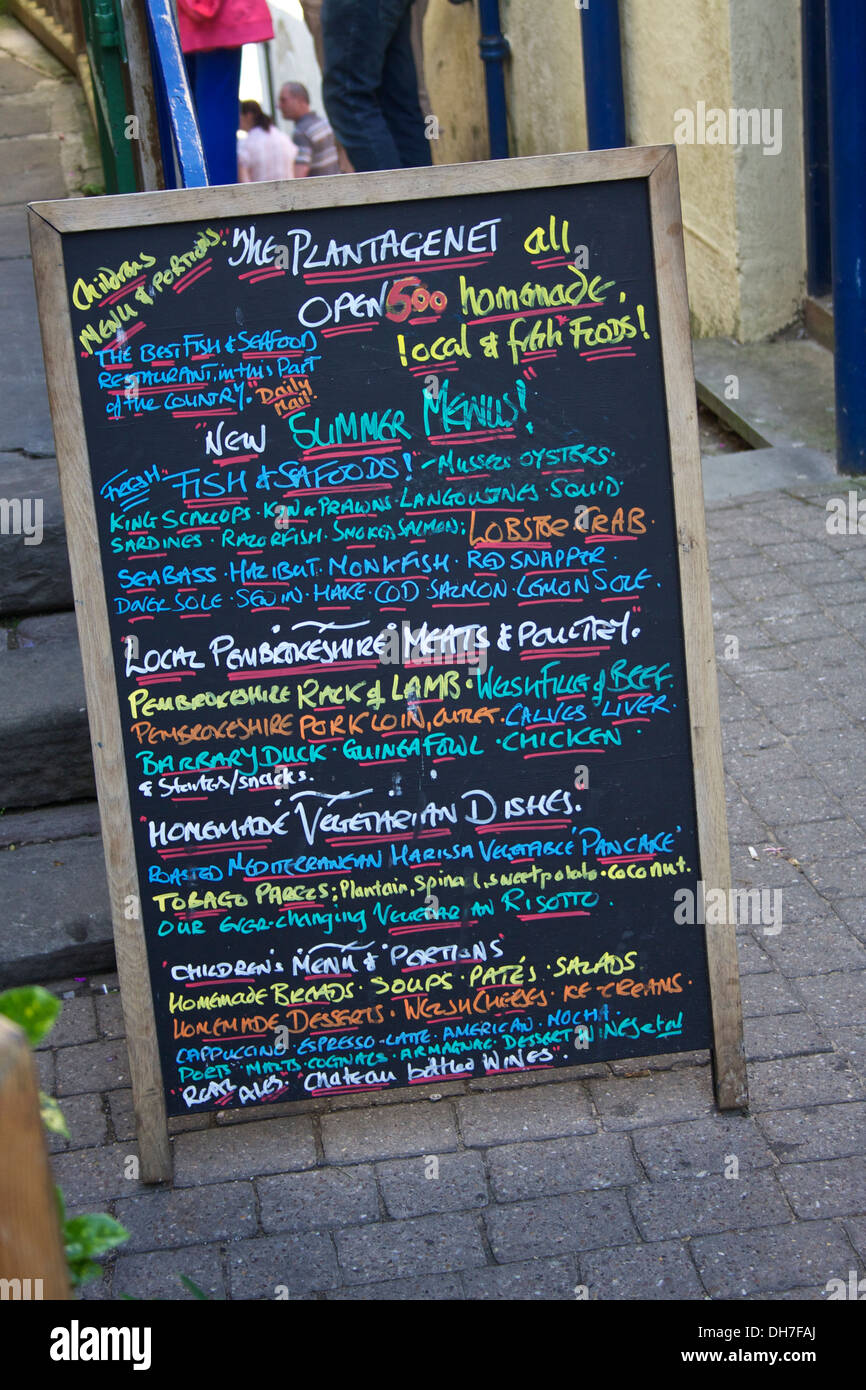 Childrens
Menu & PORTIONS.
"THE PLANTAGENET
OPEN 500
all
homemade,
local & fresh FOODS!
"THE BEST FISH & SEAFOOD
RESTAURANT, in this PART
of the COUNTRY." Daily
Mail
"NEW SUMMER MENUS!"
FRESH "FISH & SEAFOODS!" - MUSSELS OYSTERS.
KING SCALLOPS · KING PRAWNS · LANGOUSTINES SQUID
SARDINES · RAZORFISH · SMOKED SALMON · LOBSTER CRAB.
SEABASS · HALIBUT · MONKFISH · RED SNAPPER ·
DOVER SOLE · SEWIN · HAKE · COD SALMON · LEMON SOLE.
"LOCAL 'PEMBROKESHIRE' MEATS & POULTRY."
PEMBROKESHIRE RACK of LAMB · WELSH FILLET of BEEF.
PEMBROKESHIRE PORK LOIN, CALVES LIVER.
BARBARY DUCK · GUINEA FOWL · CHICKEN ·
& Starters/snacks.
"HOMEMADE VEGETARIAN DISHES."
ROASTED MEDITERRANEAN HARISSA VEGETABLE 'PANCAKE'
TOBAGO PARCELS; Plantain, Spinach, sweet potato · coconut.
OUR EVER-CHANGING VEGETARIAN RISOTTO.
"CHILDREN'S MENU & PORTIONS"
HOMEMADE BREADS · SOUPS · PATÉS · SALADS
HOMEMADE DESSERTS · WELSH CHEESES · ICE-CREAMS.
CAPPUCCINO · ESPRESSO · LATTE · AMERICAN · MOCHA
PORTS · MALTS · COGNACS · ARMAGNAC · DESSERT WINES et al
"REAL ALES" CHATEAU bottled WINES".
alamy
a
alamy
Image ID: DH7FAJ
www.alamy.com